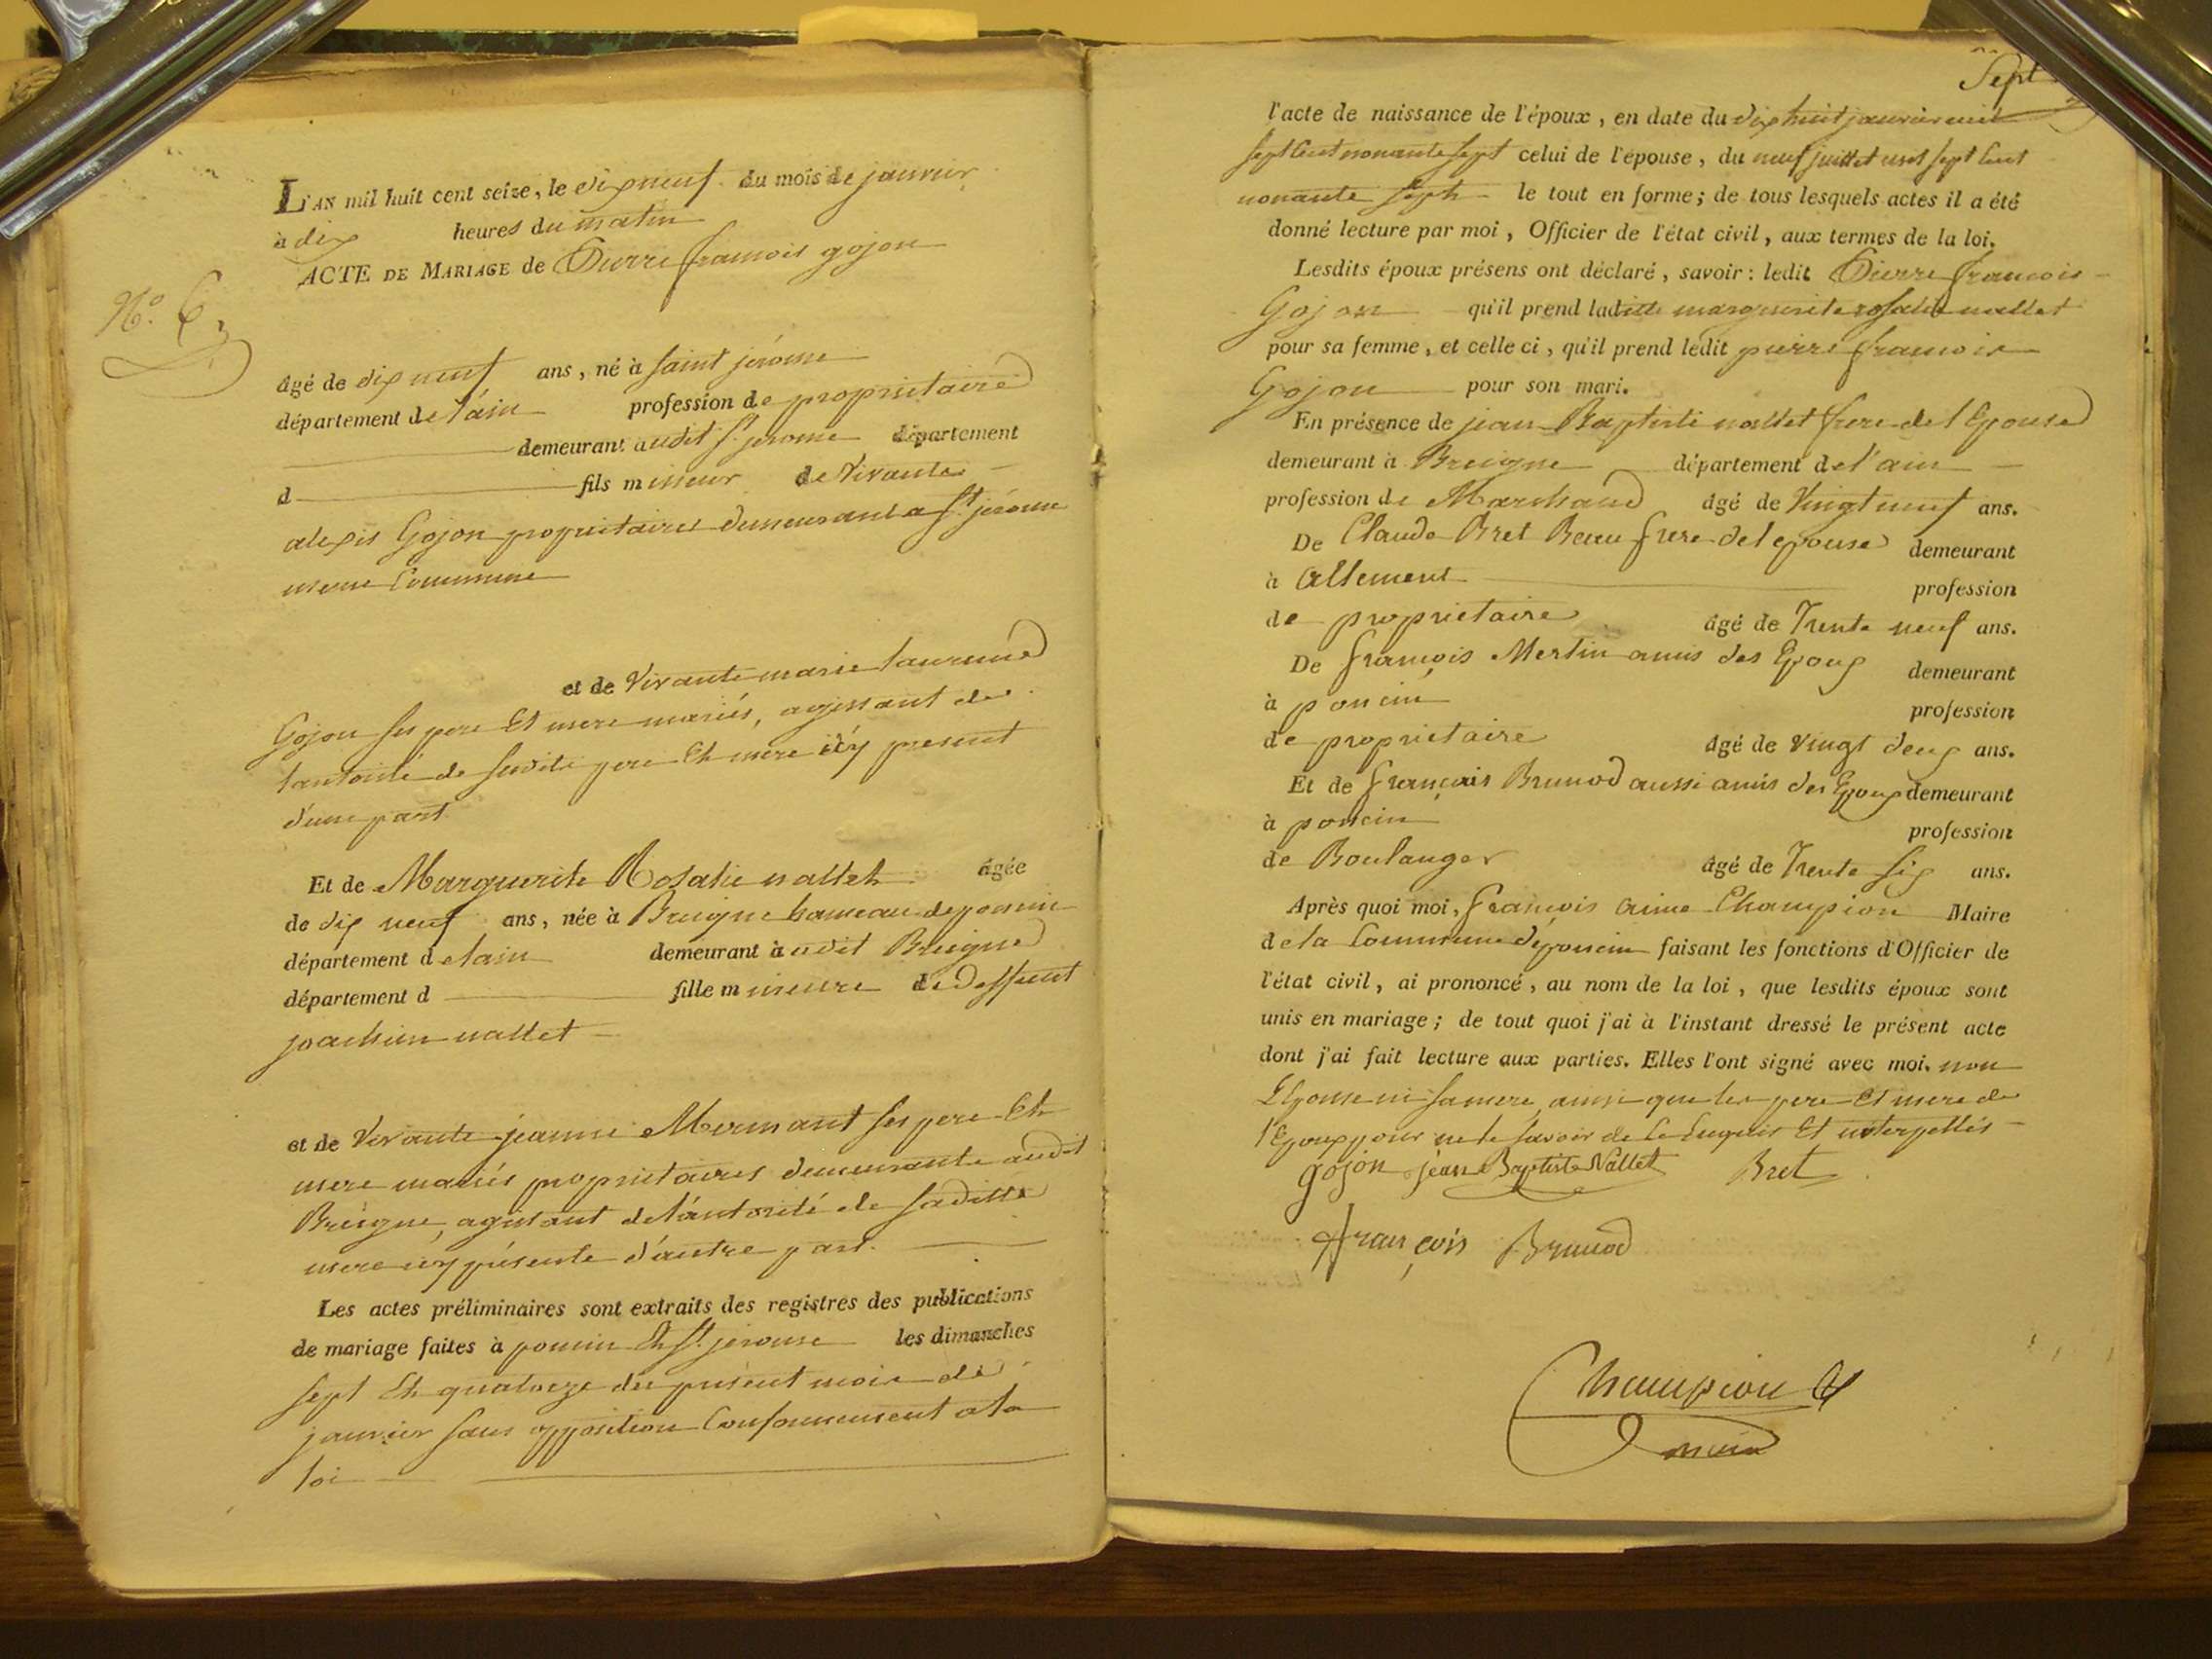 N.° 6
L'AN mil huit cent seize, le dix neuf du mois de janvier
à dix heures du matin
ACTE DE MARIAGE de Pierre francois gojon
âgé de dix neuf ans, né à saint jérome
département de l'ain profession de proprietaire
demeurant audit St. jerome département
d fils mineur de vivante
alexis Gojon proprietaires demeurant a St. jérome
meme Commune
et de vivante marie laurine
Gojon ses pere Et mere mariés, agissant de
l'autorité de sesdits pere Et mere icy present
d'une part
Et de Marguerite Rosalie nallet âgée
de dix neuf ans, née à Breigne hameau de poncin
département delain demeurant à udit Breigne
département d fille m ineure de deffunt
joachim nallet
et de vivante jeanne Mermant ses pere Et
mere mariés proprietaires demeurante audit
Breigne, agissant de l'autorité de saditte
mere icy présente d'autre part.
Les actes préliminaires sont extraits des registres des publications
de mariage faites à poncin Et St. jerome les dimanches
sept Et quatorze du présent mois de
janvier sans opposition Conformement a la
loi
Sept
l'acte de naissance de l'époux, en date du dix huit janvier mil
sept Cent nonante sept celui de l'épouse, du neuf juillet mil sept Cent
nonante sept le tout en forme; de tous lesquels actes il a été
donné lecture par moi, Officier de l'état civil, aux termes de la loi.
Lesdits époux présens ont déclaré, savoir: ledit Pierre francois
Gojon qu'il prend laditte marguerite rosalie nallet
pour sa femme, et celle ci, qu'il prend ledit pierre francois
Gojon pour son mari.
En présence de jean Baptiste nallet frere de l'Epouse
demeurant à Breigne département de l'ain
profession de Marchand âgé de vingt neuf ans.
De Claude Bret Beau frere de l'epouse demeurant
à Allement profession
de proprietaire âgé de Trente neuf ans.
De françois Merlin amis des Epoux demeurant
à poncin profession
de proprietaire âgé de vingt deux ans.
Et de françois Brunod aussi amis des Epoux demeurant
à poncin profession
de Boulanger âgé de Trente six ans.
Après quoi moi, francois aimé Champion Maire
de la Commune de poncin faisant les fonctions d'Officier de
l'état civil, ai prononcé, au nom de la loi, que lesdits époux sont
unis en mariage; de tout quoi j'ai à l'instant dressé le présent acte
dont j'ai fait lecture aux parties. Elles l'ont signé avec moi. non
L'Epouse ni sa mere, ainsi que les pere Et mere de
l'Epoux pour ne le savoir de Ce Enquis Et interpellés
gojon jean Baptiste Nallet Bret
françois Brunod
Champion